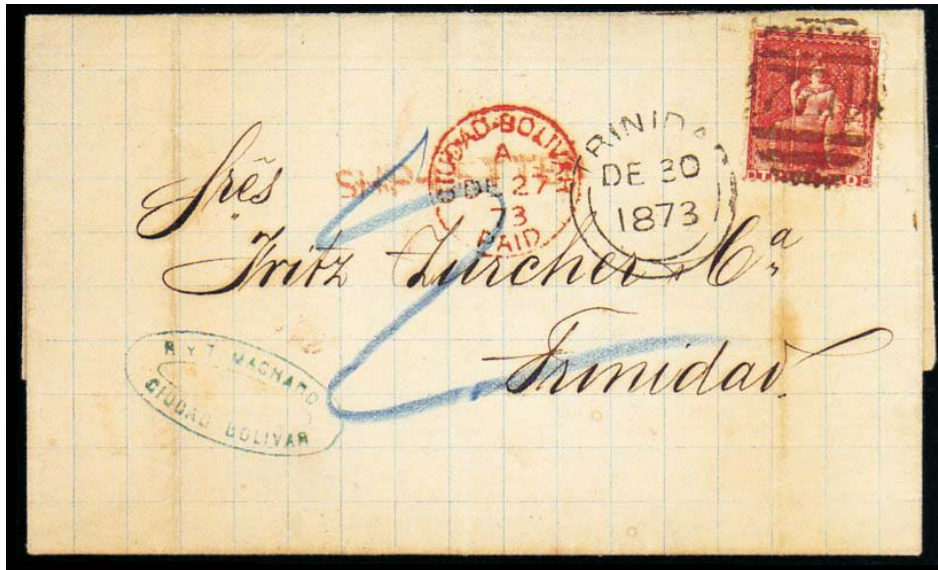 CIUDAD-BOLIVAR
A
DE 27
73
PAID
TRINIDAD
DE 30
1873
SHIP LETTER
Srēs
Fritz Zurcher & Cª
Trinidad
R Y T MACHADO
CIUDAD BOLIVAR
2